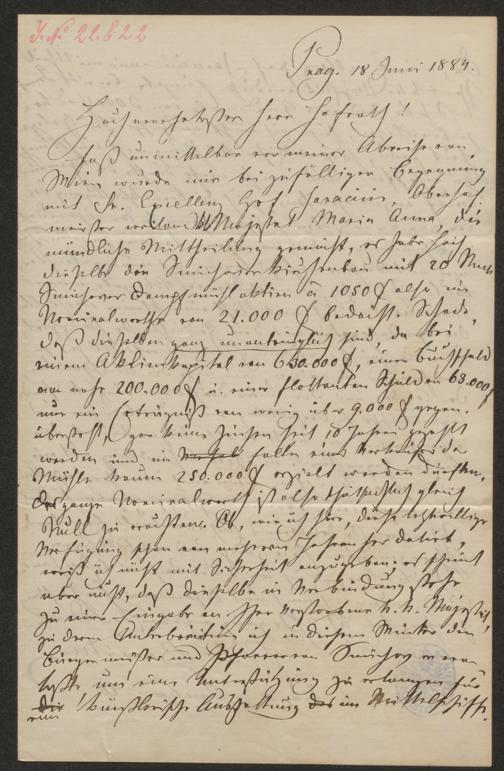 J. No 22.6.22
Prag. 18 Juni 1884.
Hochverehrtester Herr Hofrath!
Fast unmittelbar vor meiner Abreise von
Wien wurde mir bei zufälliger Begegnung
mit Sr. Excellenz Graf Saracini, Obersthof
meister weiland Ihr Majestät Maria Anna die
mündliche Mittheilung gemacht, es habe Höch
dieselbe den Smichover Kirchenbau mit 20 Stück
Smichover Dampfmühlaktien à 1050 f also im
Nominalwerthe von 21.000 f bedacht. Schade,
daß dieselben ganz unanbringlich sind, da bei
einem Aktienkapital von 630.000 f, einer Buchschuld
von mehr 200.000 f u. einer flottanten Schuld von 63.000 f
nur ein Erträgniß von wenig über 9.000 f gegen
übersteht, gar keine Zinsen seit 10 Jahren gezahlt
werden und im Falle eines Verkaufes die
Mühle kaum 250.000 f erzielt werden dürften,
der ganze Nominalwerth ist also thatsächlich gleich
Null zu erachten. Ob, wie ich höre, diese letztwillige
Verfügung schon von mehreren Jahren her datirt,
weiß ich nicht mit Sicherheit anzugeben; es scheint
aber nicht, daß dieselbe in Verbindung stehe
zu einer Eingabe an Ihre k. k. Majestät,
zu deren Unterbreitung ich in diesem Winter den
Bürgermeister und Pfarrer von Smichov veran
laßte um eine Unterstützung zu erlangen für
die künstlerische Ausstattung des im Mittelschiffe.